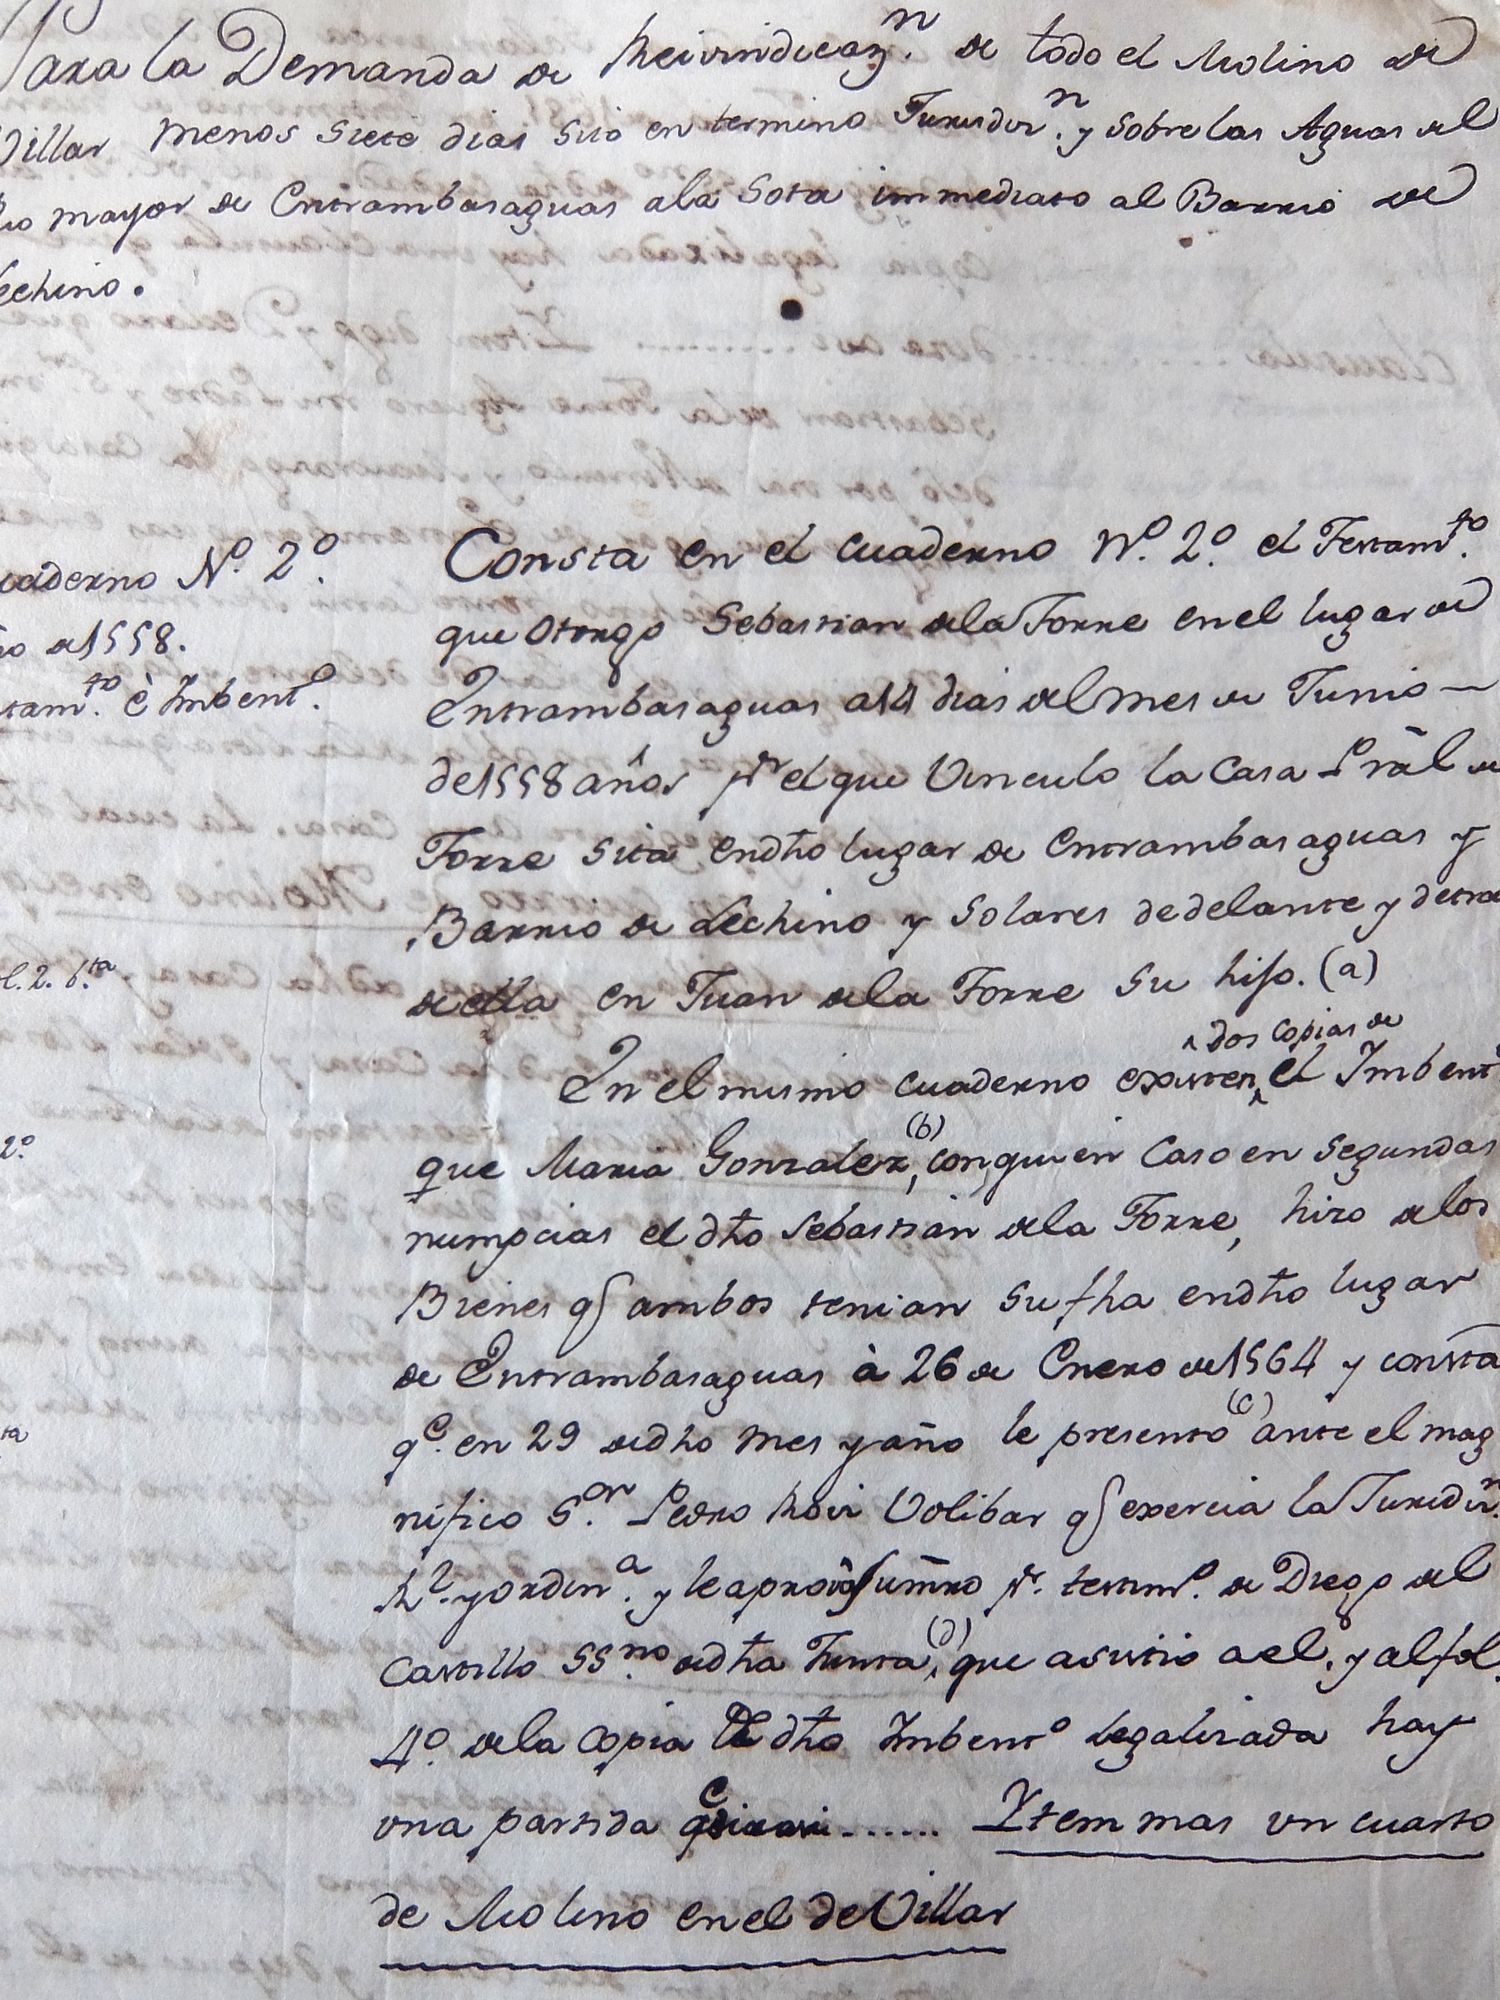 Para la Demanda de Reivindicazn. de todo el Molino de
Villar menos siete dias sito en termino Jurisdizn. y sobre las Aguas del
Rio mayor de Entrambasaguas a la Sota immediato al Barrio de
Lechino.
Cuaderno No. 2o.
Año de 1558.
Testamto. è Imbento.
Consta en el cuaderno No. 2o. el Testamto.
que otorgo Sebastian dela Torre en el lugar de
Entrambasaguas a 14 dias del mes de Junio
de 1558 años pr el que Vinculo la Casa Prâl de
Torre sita endho lugar de Entrambasaguas y
Barrio de Lechino y Solares dedelante y detras
fol. 2. bta.
de ella en Juan dela Torre su hijo. (a)
dos copias de
En el mismo cuaderno existen el Imbento
2o.
(b)
que Maria Gonzalez, con quien Caso en segundas
numpcias el dho Sebastian dela Torre, hizo delos
Bienes q ambos tenian su fha endho lugar
de Entrambasaguas à 26 de Enero de 1564 y consta
(c)
qe. en 29 dedho mes y año le presento ante el mag
nifico Sor. Pedro Ruiz Volibar q exercia la Juridizn.
Rl. y ordina. y le aprovo sumro pr. testimo. de Diego del
(d)
Castillo SSno. de dha Junta, que asistio a el, y al fol.
4o. dela copia de dho Imbento legalizada hay
una partida qe dice asi ....... Ytem mas un cuarto
de Molino en el de Villar